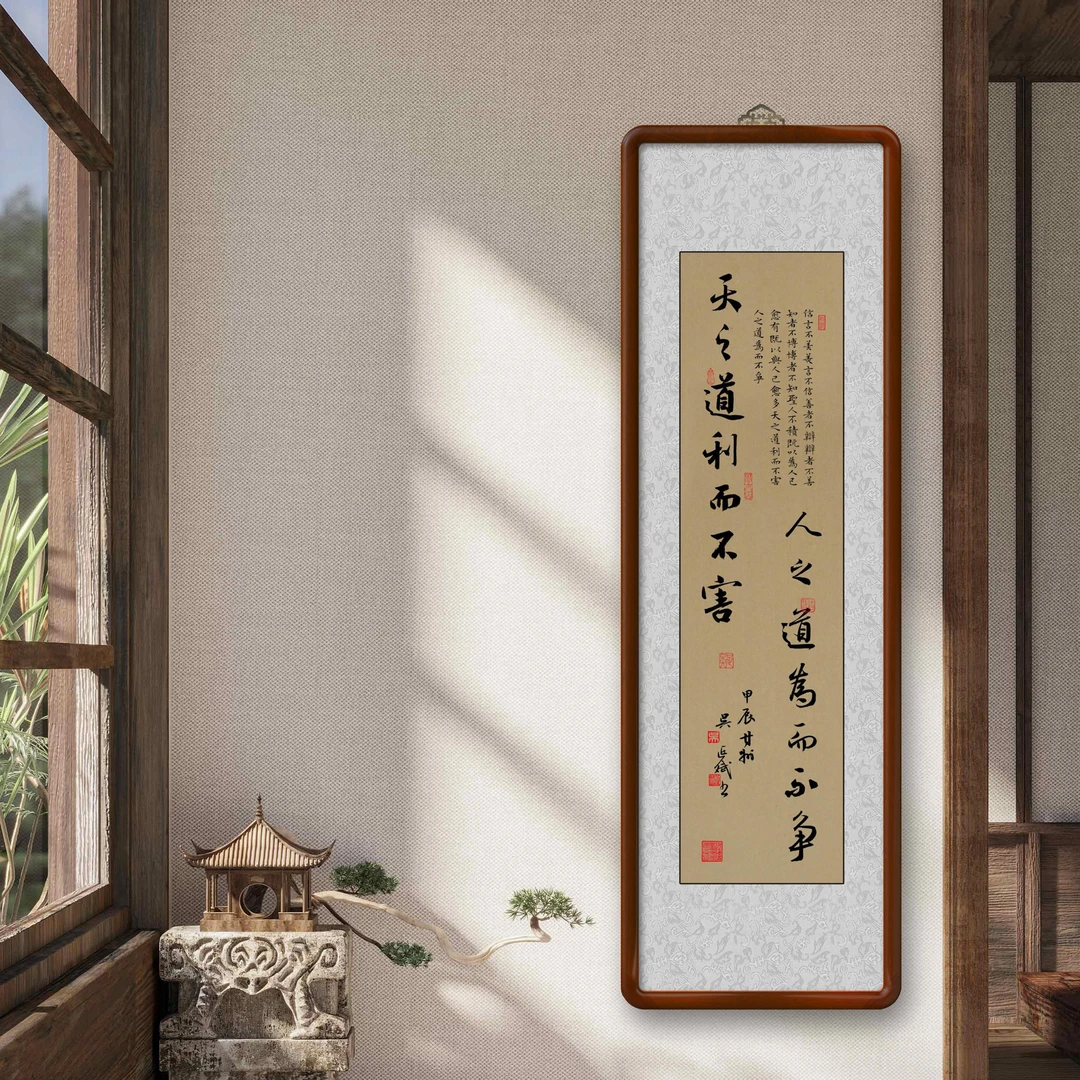 天之道利而不害
人之道為而不争
信言不美美言不信善者不辯辯者不善
知者不博博者不知聖人不積既以為人己
愈有既以與人己愈多天之道利而不害
人之道為而不爭
甲辰
吴
书